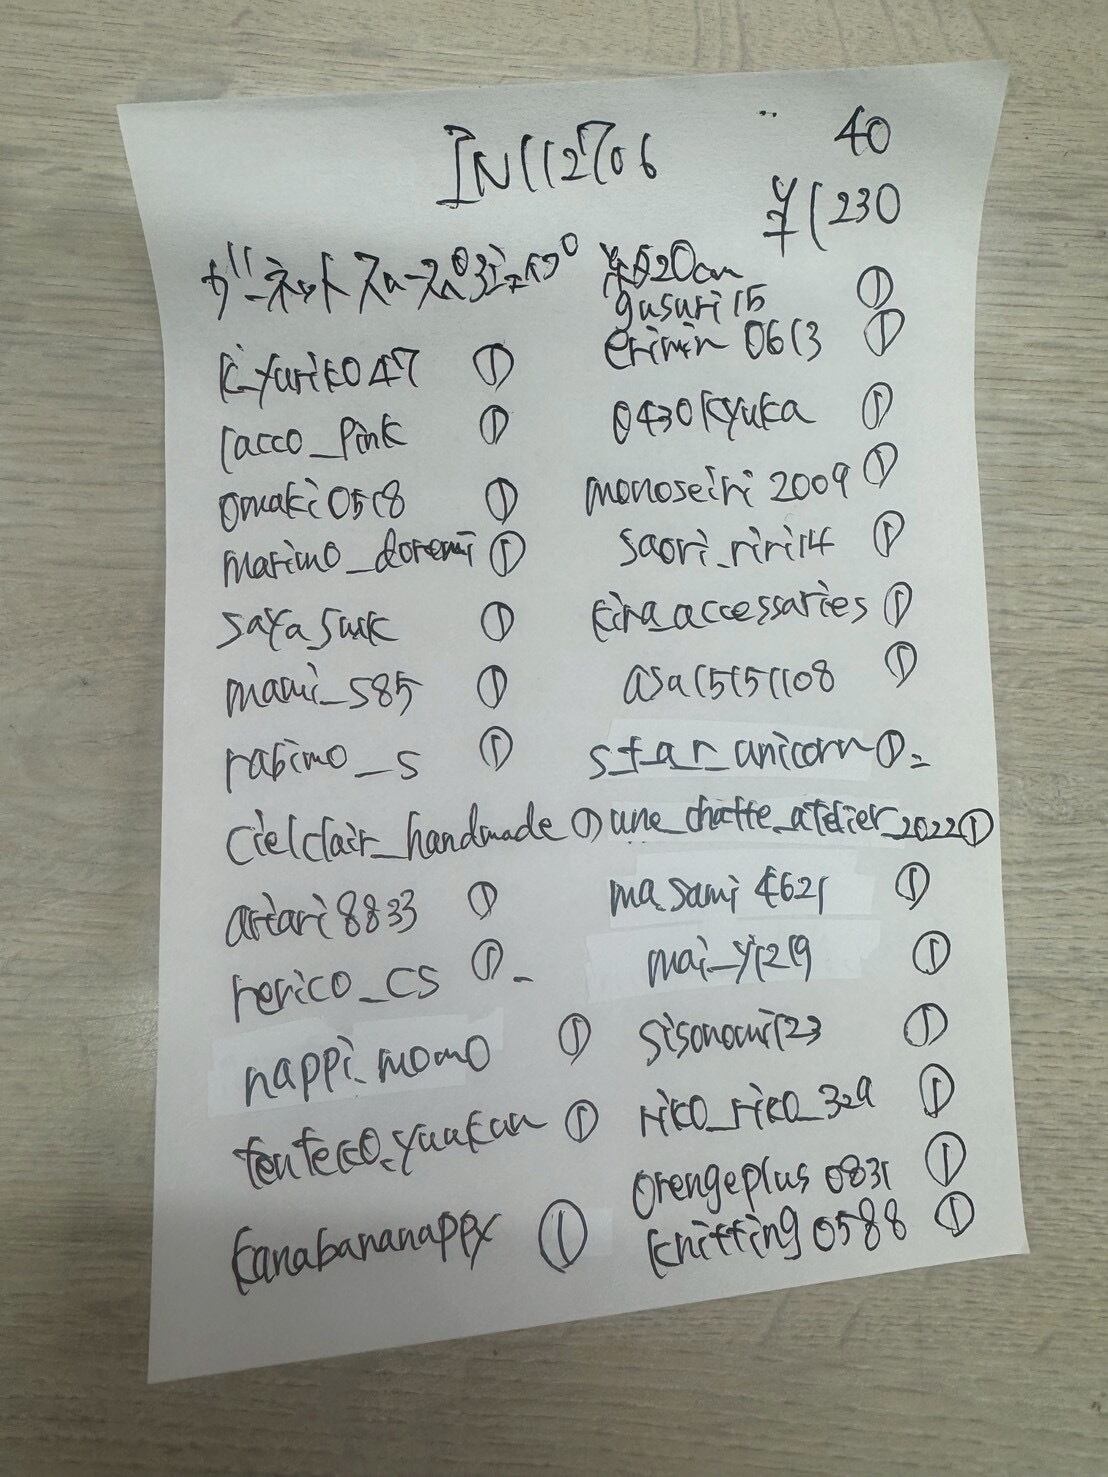 IN112706
40
¥1230
ガーネット
20cm
gusuri15 ①
erimin0613 ①
k.yuriko047 ①
racco_pink ①
omaki0518 ①
marimo_doremi ①
saya_suk ①
mami_585 ①
rabimo_s ①
cielclair_handmade ①
ariari8833 ①
rerico_cs ①
nappi.momo ①
tenteko.yuukun ①
kanabananappy ①
0430kyuka ①
monoseiri2009 ①
saori_riri14 ①
kira_accessaries ①
asa15151108 ①
s_t_a_r_unicorn ①
une_chatte_atelier_2022 ①
ma.sami4621 ①
mai_y1219 ①
sisonomi123 ①
riko_riko_329 ①
orengeplus0831 ①
knitting0588 ①